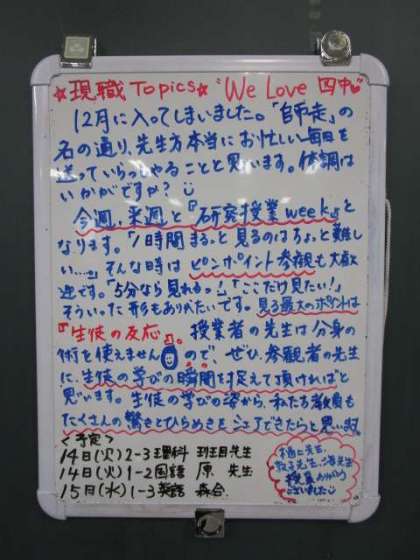 ☆現職Topics☆ "We Love 四中"
12月に入ってしまいました。「師走」の
名の通り、先生方本当にお忙しい毎日を
送っていらっしゃることと思います。体調は
いかがですか?
今週、来週と『研究授業week』と
なります。「1時間まるっと見るのはちょっと難し
い...」そんな時はピンポイント参観も大歓
迎です。「5分なら見れる。」「ここだけ見たい!」
そういった形もありがたいです。見る最大のポイントは
『生徒の反応』。授業者の先生は分身の
術を使えませんので、ぜひ、参観者の先生
に、生徒の学びの瞬間を捉えて頂ければと
思います。生徒の学びの姿から、私たち教員も
たくさんの驚きとひらめきをシェアできたらと思います。
<予定>
14日(火)2-3理科 先生
14日(火)1-2国語 原 先生
15日(水)1-3英語 森合
先生、
先生、先生
授業ありがとう
ございました